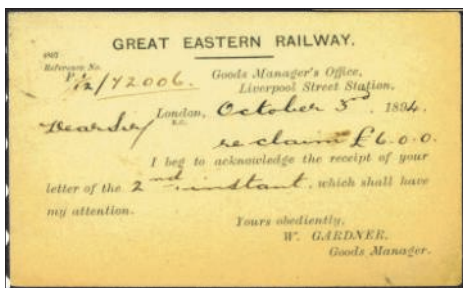 GREAT EASTERN RAILWAY.
Reference No.
Goods Manager's Office,
P1/2/72006.
Liverpool Street Station,
London, October 3rd. 1894.
E.C.
Dear Sir
re claim £6.0.0.
I beg to acknowledge the receipt of your
letter of the 2nd instant, which shall have
my attention.
Yours obediently,
W. GARDNER,
Goods Manager.